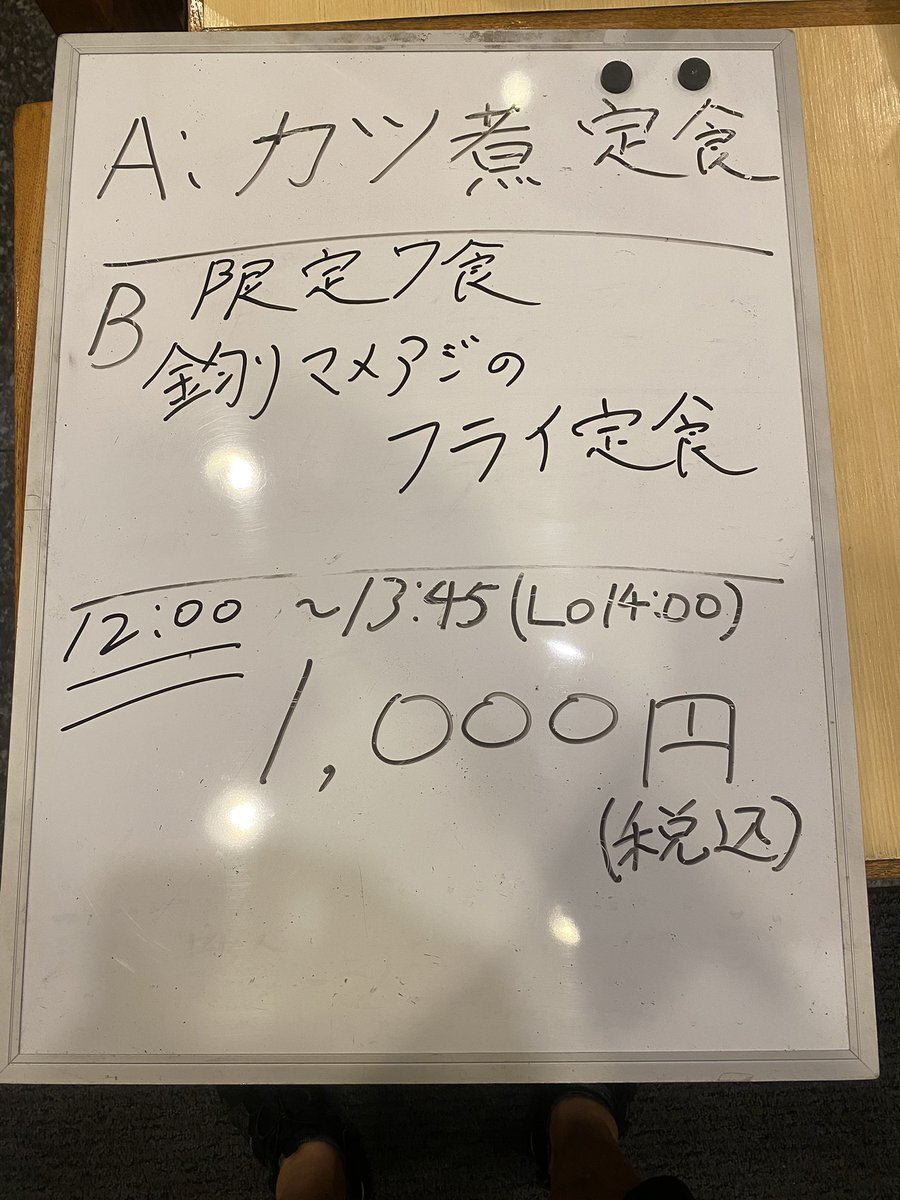 A: カツ煮 定食
B 限定7食
釣りマメアジの
フライ定食
12:00 ~13:45(LO14:00)
1,000円
(税込)